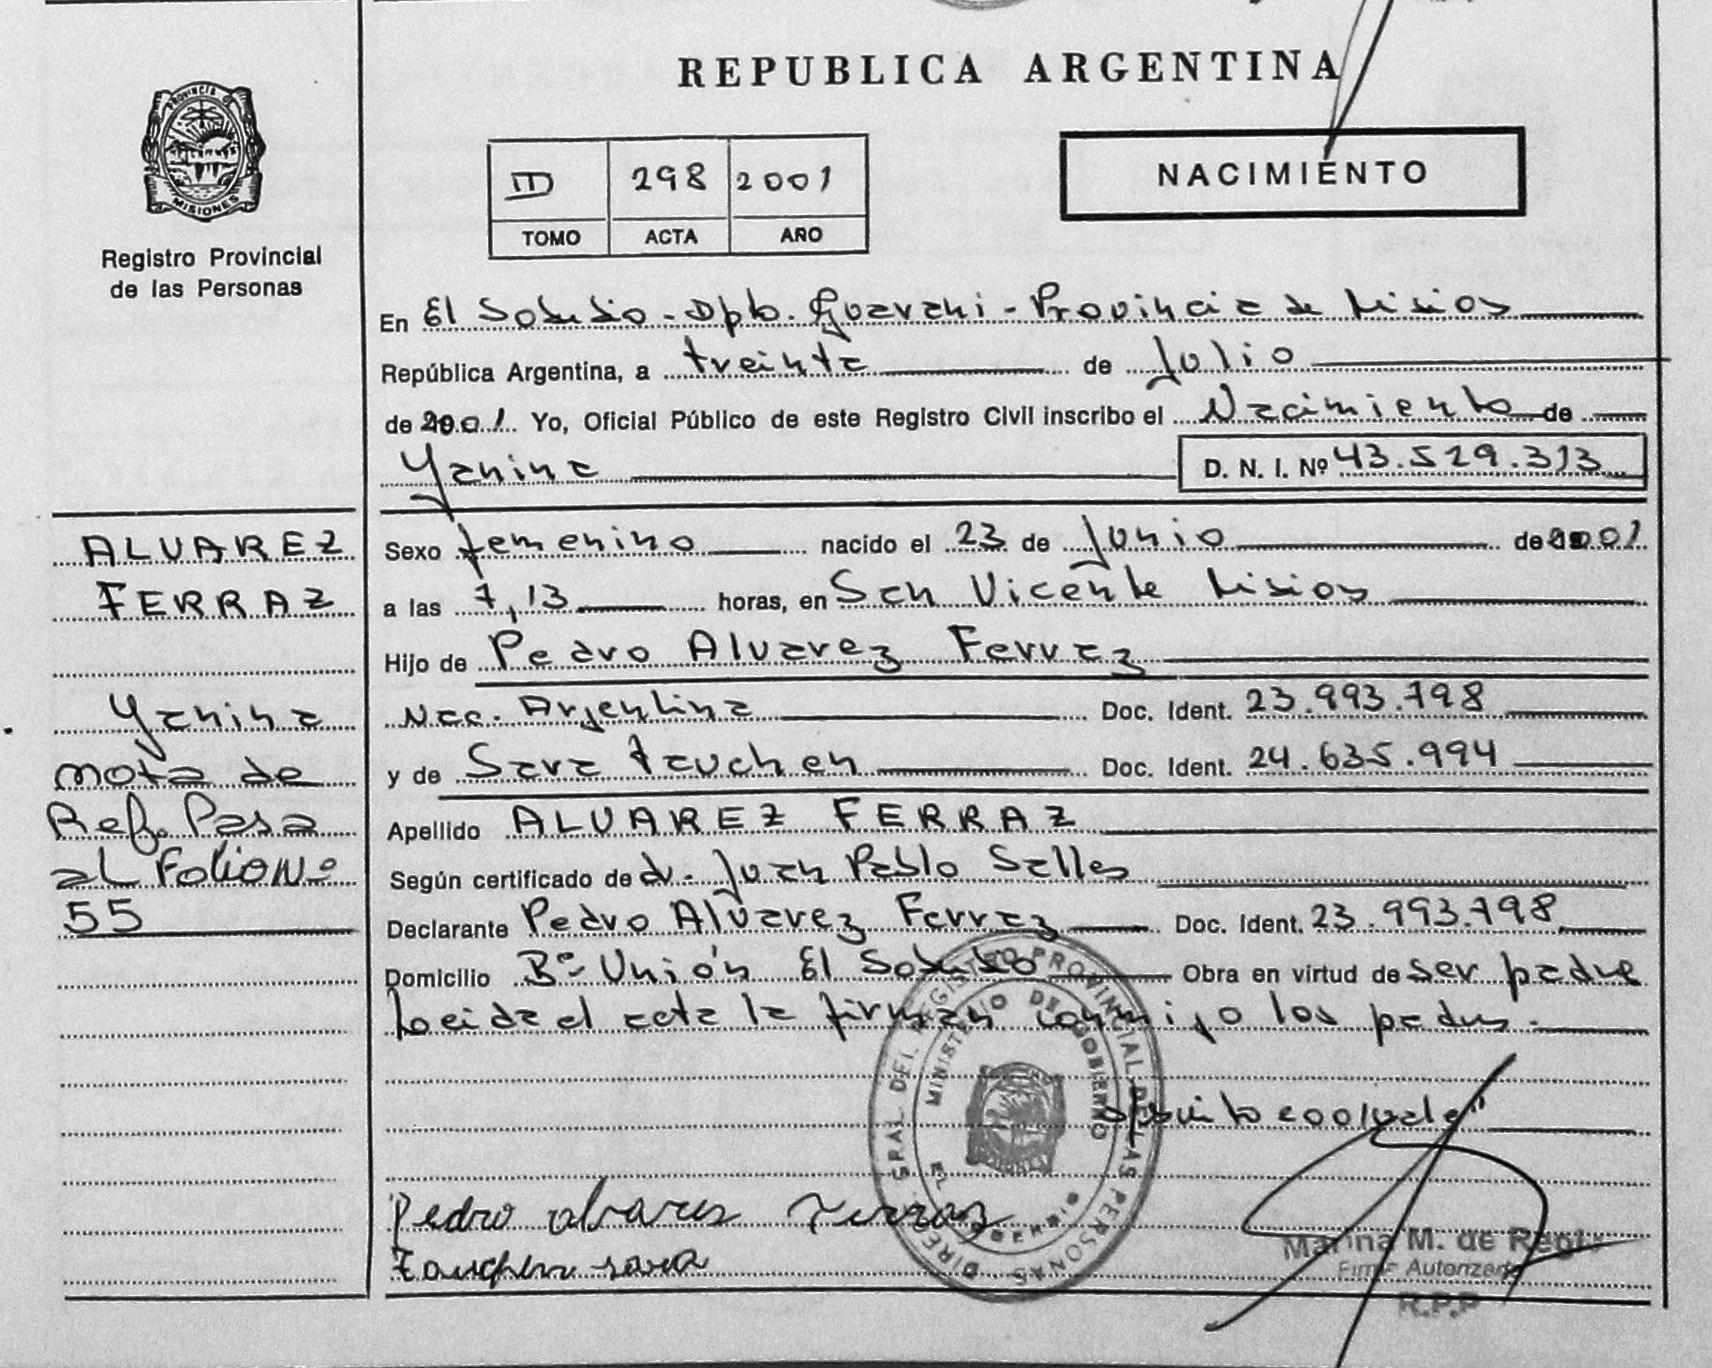 REPUBLICA ARGENTINA
PROVINCIA DE
MISIONES
Registro Provincial
de las Personas
III 298 2001
TOMO ACTA AÑO
NACIMIENTO
En El Soberbio - Dpto. Guarani - Provincia de Misios
República Argentina, a treinta de Julio
de 2001 Yo, Oficial Público de este Registro Civil inscribo el Nacimiento de
Yanina D. N. I. Nº 43.529.313
ALVAREZ
FERRAZ
Yanina
nota de
Ref. Pasa
al Folio Nº
55
Sexo femenino nacido el 23 de Junio de 2001
a las 7,13 horas, en San Vicente Misios
Hijo de Pedro Alvarez Ferraz
Nac. Argentina Doc. Ident. 23.993.798
y de Sara Tauchen Doc. Ident. 24.635.994
Apellido ALVAREZ FERRAZ
Según certificado de dr. Juan Pablo Salles
Declarante Pedro Alvarez Ferraz Doc. Ident. 23.993.798
Domicilio Bº Unión El Soberbio Obra en virtud de ser padre
Leida el acta la firman conmigo los padres.
Pedro alvares Ferras
Tauchen sara
DIREC. GRAL DEL REGISTRO PROVINCIAL DE LAS PERSONAS
MINISTERIO DE GOBIERNO
EL SOBERBIO
Marina M. de
Firma Autorizada
R.P.P